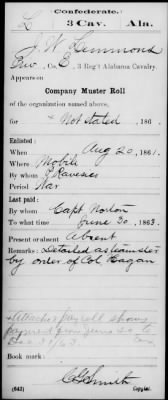 Confederate.
L 3 Cav. Ala.
J. W. Lemmons
Priv, Co. E, 3 Reg't Alabama Cavalry.
Appears on
Company Muster Roll
of the organization named above,
for Not stated, 186 .
Enlisted:
When Aug 20, 1861.
Where Mobile
By whom
Period War
Last paid:
By whom Capt. Norton
To what time June 30, 1863.
Present or absent Absent
Remarks: Detailed as teamster
by order of Col Hagan
Attached payroll shows
payment from June 30 to
31/63.
Book mark:
(642) Copyist.